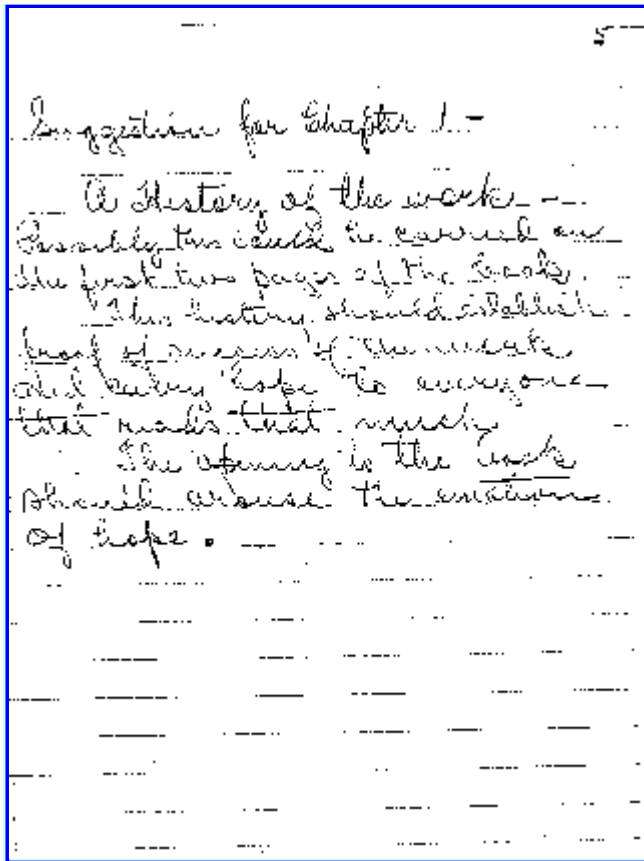 5
Suggestion for Chapter 1 -
A History of the work -
Possibly this could be carried on
the first two pages of the book.
This history should establish
proof of success of the work
and bring hope to everyone
that reads that much
The opening to the book
should arouse the emotions
of hope.